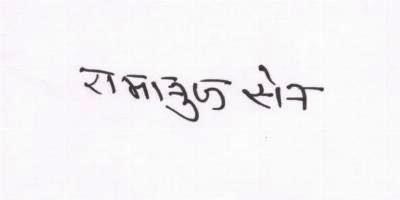 रामानुज सेन